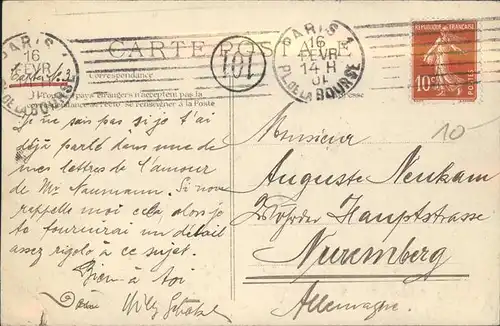 PARIS 1
16
FEVR
PL. DE LA BOURSE
CARTE POSTALE
101
PARIS 1
16
FEVR
14 H
PL. DE LA BOURSE
REPUBLIQUE FRANCAISE
10c
POSTES
10
Carte N. 3.
Correspondance
pays étrangers n'acceptent pas la
se renseigner à la Poste
je ne sais pas si je t'ai
déjà parlé dans une de
mes lettres de l'amour
de Mr Naumann. Si non
rappelle moi cela alors je
te fournirai un détail
assez rigolo à ce sujet.
Bien à toi
Willy
Monsieur
Auguste Neukam
Hauptstrasse
Nuremberg
Allemagne.